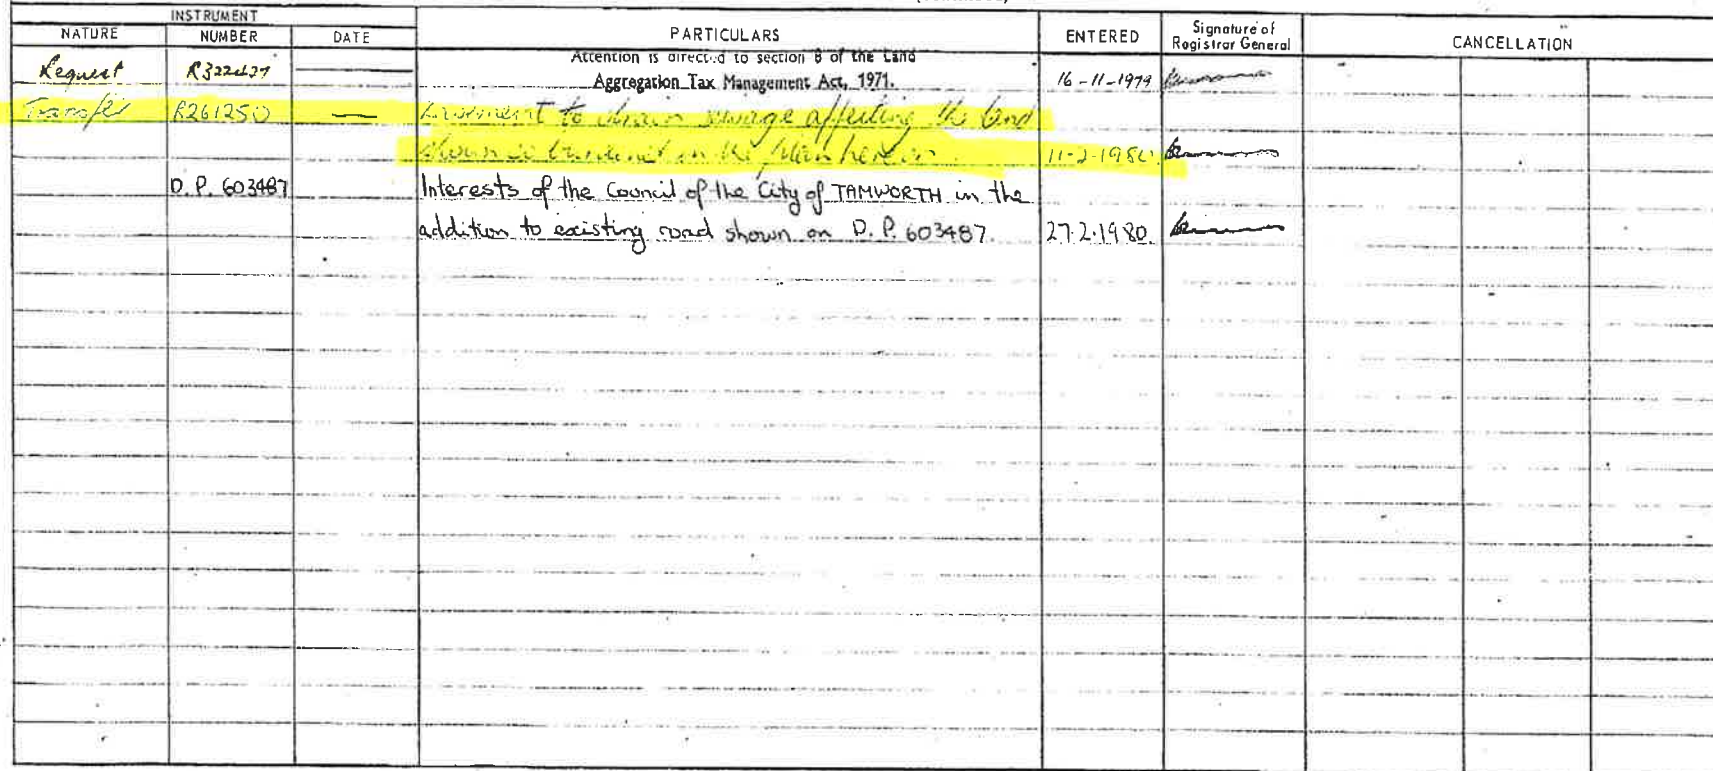 INSTRUMENT
NATURE NUMBER DATE PARTICULARS ENTERED Signature of Registrar General CANCELLATION
Attention is directed to section 8 of the Land
Request R322427 Aggregation Tax Management Act, 1971. 16-11-1979
Transfer R261250 Easement to drain sewage affecting the land
shown so burdened in the plan hereon. 11-2-1980
D.P. 603487 Interests of the Council of the City of TAMWORTH in the
addition to existing road shown on D.P. 603487. 27.2.1980.